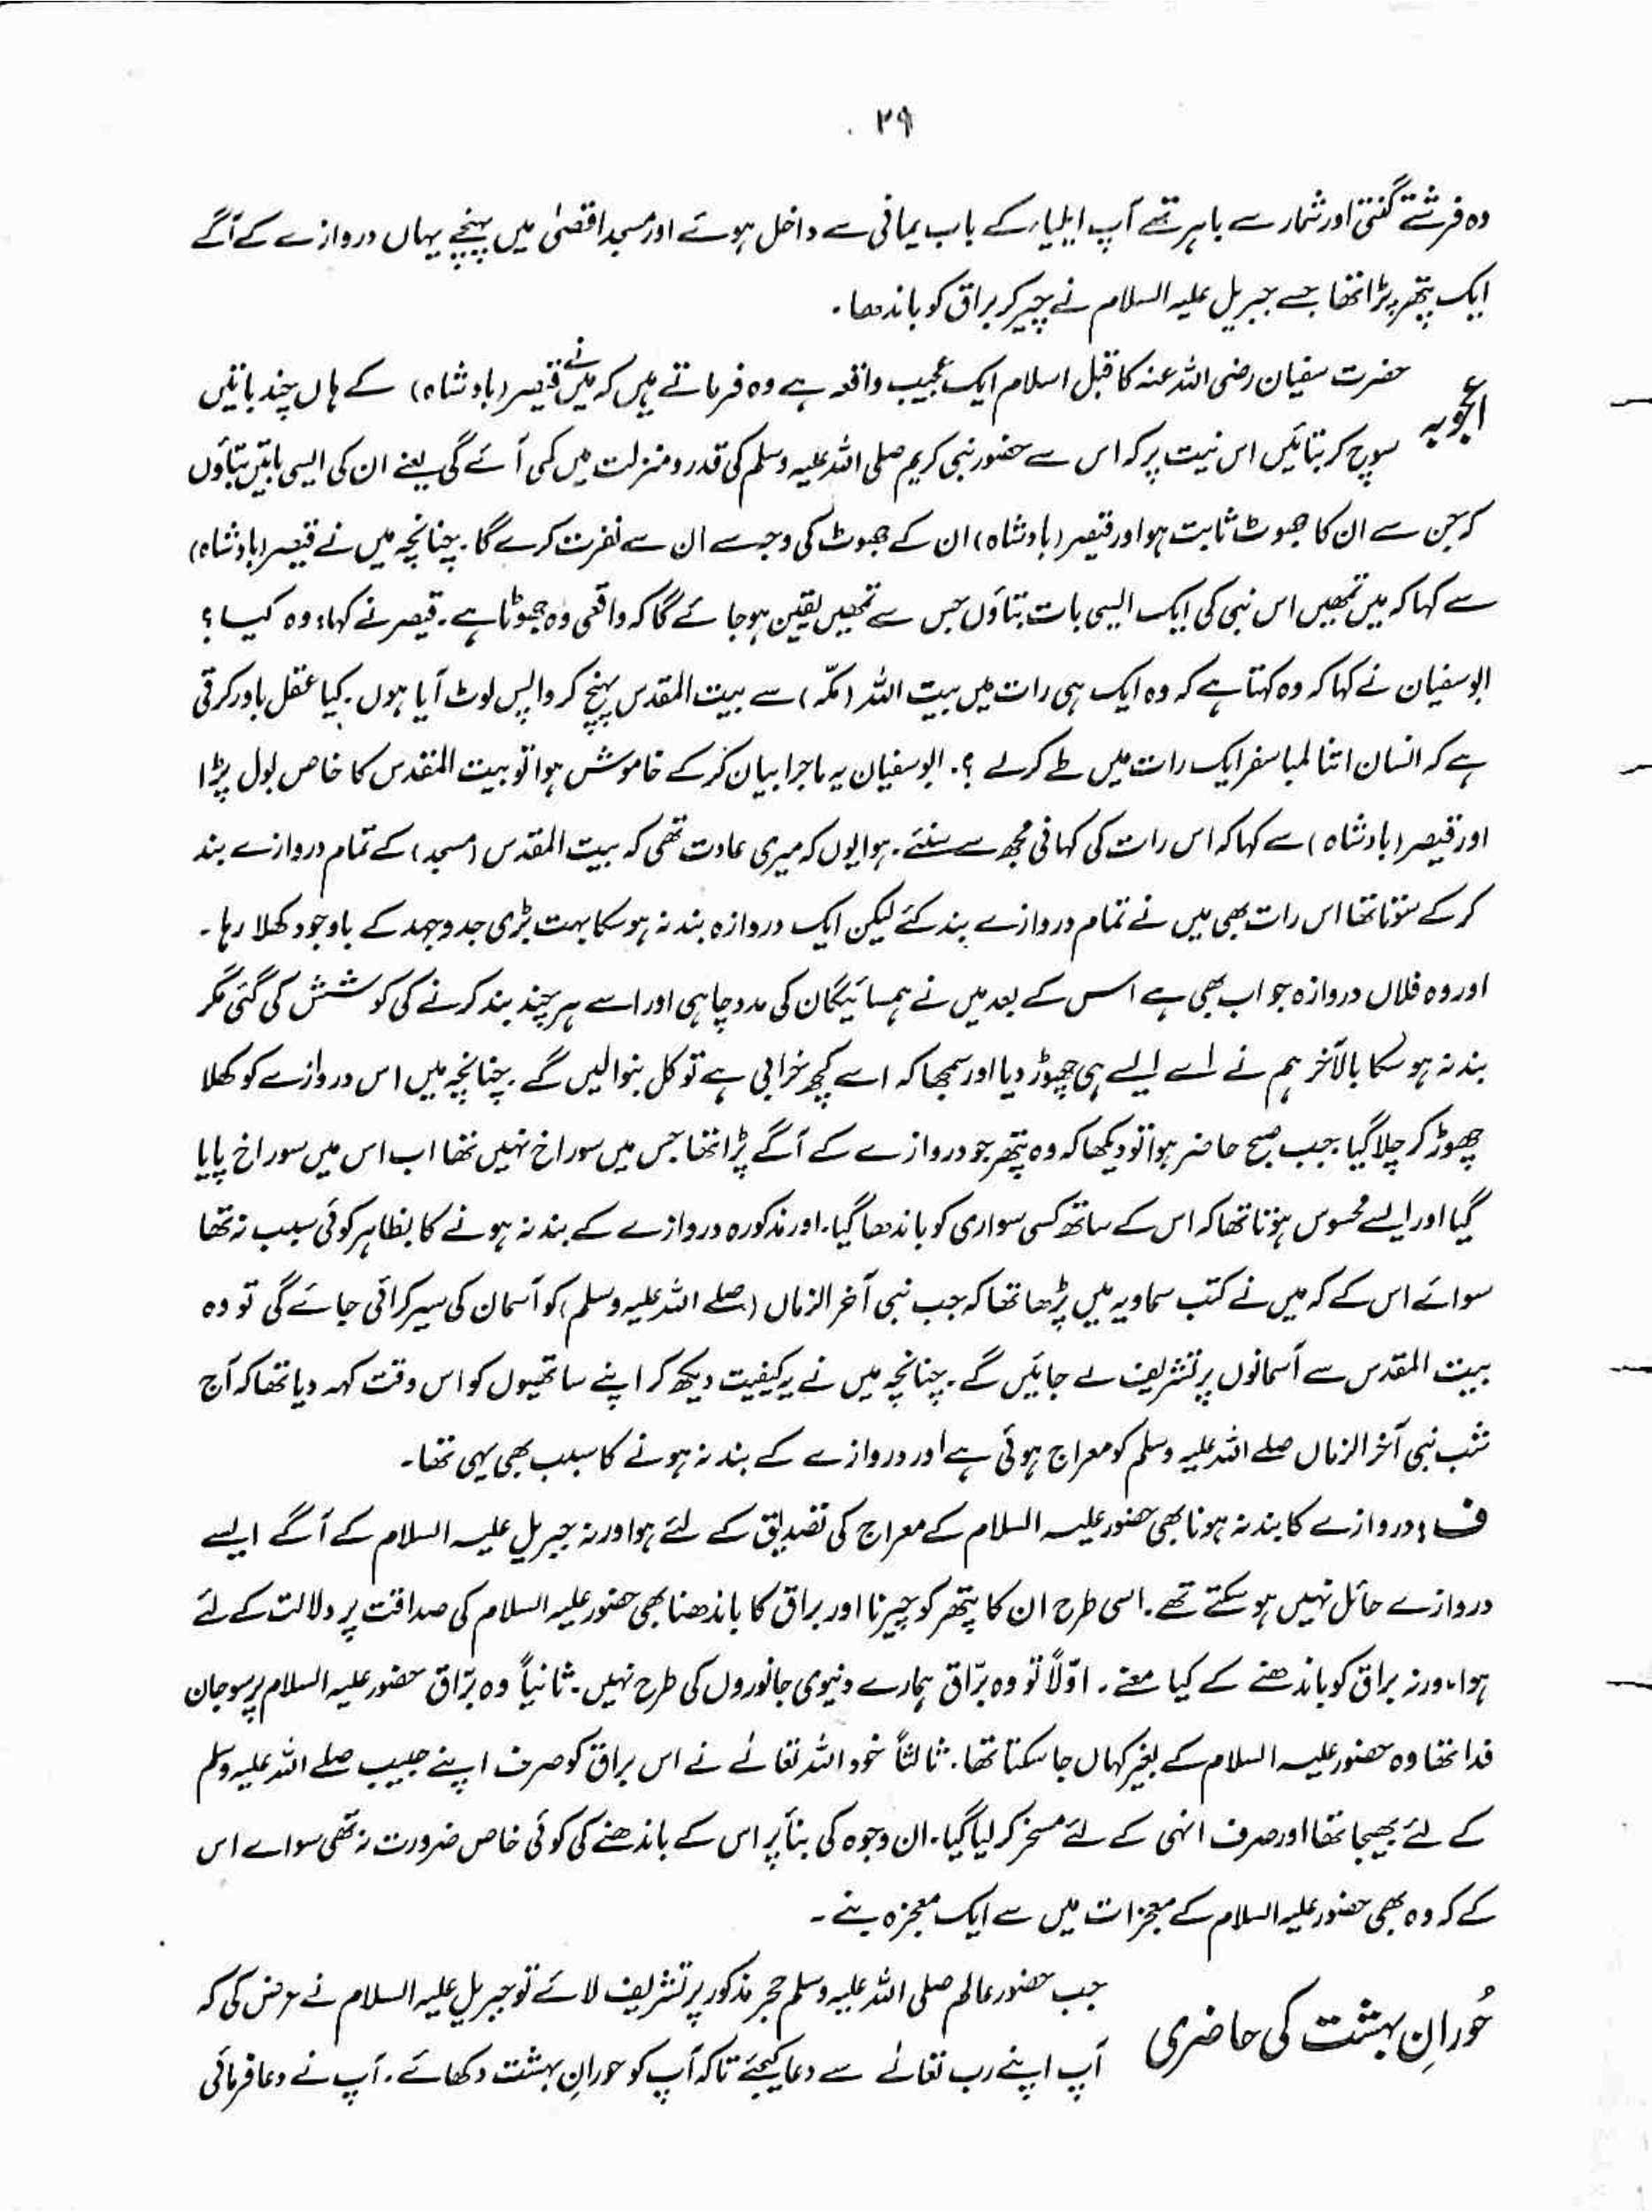 ۲۹
وہ فرشتے گنتی اور شمار سے باہر تھے آپ ایلیاء کے باب یمانی سے داخل ہوئے اور مسجد اقصیٰ میں پہنچے یہاں دروازے کے آگے
ایک پتھر پڑا تھا جسے جبریل علیہ السلام نے چیر کر براق کو باندھا۔
اعجوبہ حضرت سفیان رضی اللہ عنہ کا قبل اسلام ایک عجیب واقعہ ہے وہ فرماتے ہیں کہ میں نے قیصر (بادشاہ) کے ہاں چند باتیں
سوچ کر بتائیں اس نیت پر کہ اس سے حضور نبی کریم صلی اللہ علیہ وسلم کی قدر و منزلت میں کمی آئے گی یعنے ان کی ایسی باتیں بتاؤں
کہ جن سے ان کا جھوٹ ثابت ہو اور قیصر (بادشاہ) ان کے جھوٹ کی وجہ سے ان سے نفرت کرے گا۔ چنانچہ میں نے قیصر (بادشاہ)
سے کہا کہ میں تمھیں اس نبی کی ایک ایسی بات بتاؤں جس سے تمھیں یقین ہو جائے گا کہ واقعی وہ جھوٹا ہے۔ قیصر نے کہا: وہ کیا ؟
ابوسفیان نے کہا کہ وہ کہتا ہے کہ وہ ایک ہی رات میں بیت اللہ (مکّہ) سے بیت المقدس پہنچ کر واپس لوٹ آیا ہوں۔ کیا عقل باور کرتی
ہے کہ انسان اتنا لمبا سفر ایک رات میں طے کرلے ؟۔ ابوسفیان یہ ماجرا بیان کر کے خاموش ہوا تو بیت المقدس کا خاص بول پڑا
اور قیصر (بادشاہ) سے کہا کہ اس رات کی کہانی مجھ سے سنئے۔ ہوا یوں کہ میری عادت تھی کہ بیت المقدس (مسجد) کے تمام دروازے بند
کر کے سوتا تھا اس رات بھی میں نے تمام دروازے بند کئے لیکن ایک دروازہ بند نہ ہو سکا بہت بڑی جدوجہد کے باوجود کھلا رہا۔
اور وہ فلاں دروازہ جو اب بھی ہے اس کے بعد میں نے ہمسائیگان کی مدد چاہی اور اسے ہر چند بند کرنے کی کوشش کی گئی مگر
بند نہ ہو سکا بالآخر ہم نے اسے ایسے ہی چھوڑ دیا اور سمجھا کہ اسے کچھ خرابی ہے تو کل بنوا لیں گے۔ چنانچہ میں اس دروازے کو کھلا
چھوڑ کر چلا گیا۔ جب صبح حاضر ہوا تو دیکھا کہ وہ پتھر جو دروازے کے آگے پڑا تھا جس میں سوراخ نہیں تھا اب اس میں سوراخ پایا
گیا اور ایسے محسوس ہوتا تھا کہ اس کے ساتھ کسی سواری کو باندھا گیا۔ اور مذکورہ دروازے کے بند نہ ہونے کا بظاہر کوئی سبب نہ تھا
سوائے اس کے کہ میں نے کتب سماویہ میں پڑھا تھا کہ جب نبی آخر الزماں (صلے اللہ علیہ وسلم) کو آسمان کی سیر کرائی جائے گی تو وہ
بیت المقدس سے آسمانوں پر تشریف لے جائیں گے۔ چنانچہ میں نے یہ کیفیت دیکھ کر اپنے ساتھیوں کو اس وقت کہہ دیا تھا کہ آج
شب نبی آخر الزماں صلے اللہ علیہ وسلم کو معراج ہوئی ہے اور دروازے کے بند نہ ہونے کا سبب بھی یہی تھا۔
ف : دروازے کا بند نہ ہونا بھی حضور علیہ السلام کے معراج کی تصدیق کے لئے ہوا ورنہ جبریل علیہ السلام کے آگے ایسے
دروازے حائل نہیں ہو سکتے تھے۔ اسی طرح ان کا پتھر کو چیرنا اور براق کا باندھنا بھی حضور علیہ السلام کی صداقت پر دلالت کے لئے
ہوا، ورنہ براق کو باندھنے کے کیا معنے۔ اوّلاً تو وہ برّاق ہمارے دنیوی جانوروں کی طرح نہیں۔ ثانیاً وہ برّاق حضور علیہ السلام پر سو جان
فدا تھا وہ حضور علیہ السلام کے بغیر کہاں جا سکتا تھا۔ ثالثاً خود اللہ تعالےٰ نے اس براق کو صرف اپنے حبیب صلے اللہ علیہ وسلم
کے لئے بھیجا تھا اور صرف انہی کے لئے مسخر کر لیا گیا۔ ان وجوہ کی بنأ پر اس کے باندھنے کی کوئی خاص ضرورت نہ تھی سوائے اس
کے کہ وہ بھی حضور علیہ السلام کے معجزات میں سے ایک معجزہ بنے۔
حُورانِ بہشت کی حاضری جب حضور عالم صلی اللہ علیہ وسلم حجر مذکور پر تشریف لائے تو جبریل علیہ السلام نے عرض کی کہ
آپ اپنے رب تعالےٰ سے دعا کیجئے تاکہ آپ کو حورانِ بہشت دکھائے۔ آپ نے دعا فرمائی